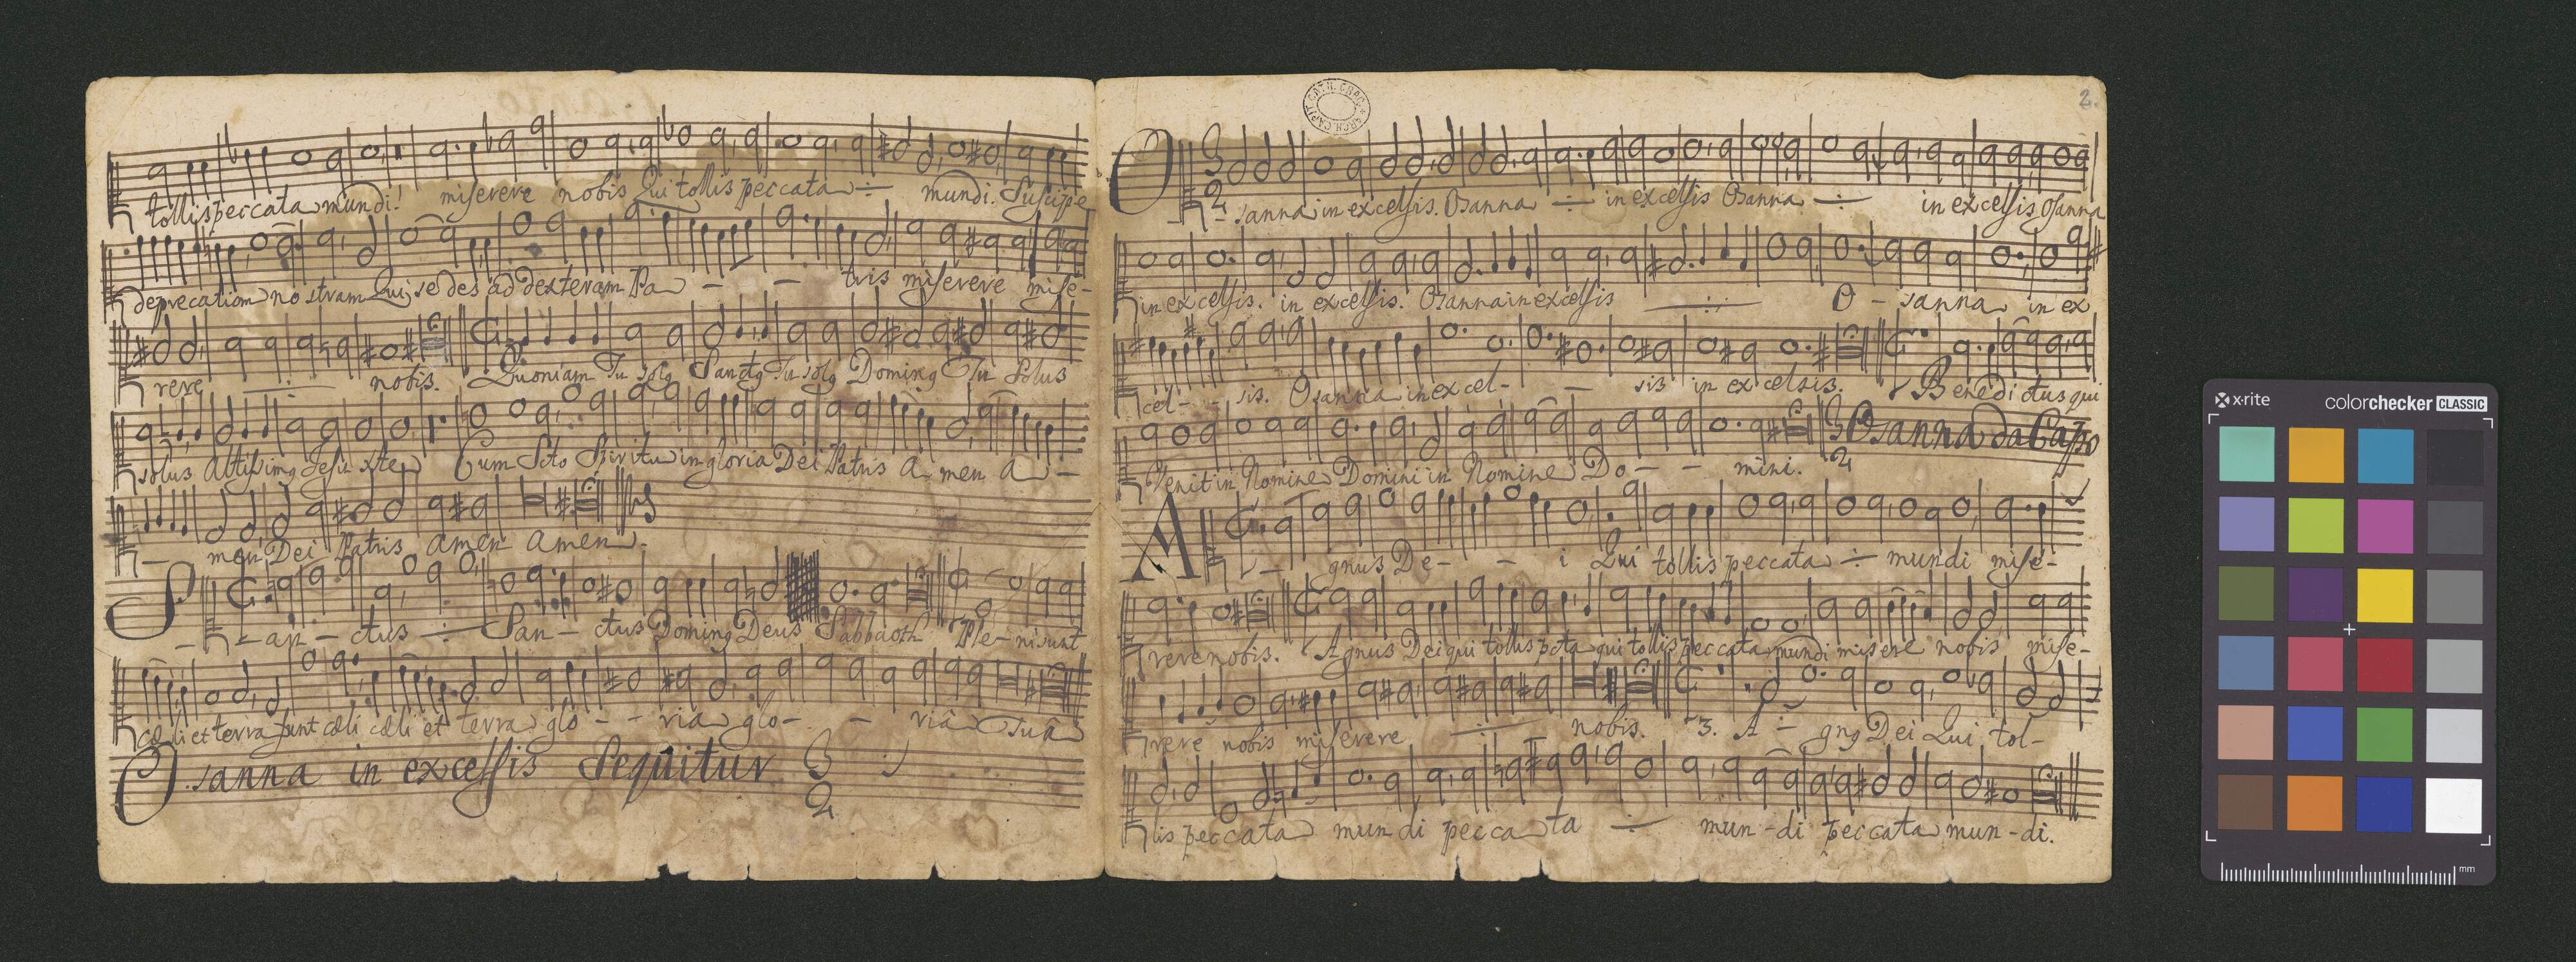 tollis peccata mundi! miserere nobis Qui tollis peccata ·/· mundi. Suscipe
deprecationem nostram Qui sedes ad dexteram Pa - - tris miserere mise-
rere ·/· nobis. Quoniam Tu solq Sanctq Tu solq Dominq Tu Solus
solus Altissimq Jesu xte Cum Scto Spiritu in gloria Dei Patris A-men A -
- men Dei Patris Amen Amen.
S - an - ctus ·/· San - ctus Dominq Deus Sabbaoth Ple - ni sunt
cæli et terra sunt cæli cæli et terra glo - - ria glo - - riâ Tuâ
Osanna in excelsis Sequitur 3
2
2.
ARCH. CAPIT. CATH. CRAC.
O 3
2 - sanna in excelsis. Osanna ·/· in excelsis Osanna ·/· in excelsis Osanna
in excelsis. in excelsis. Osanna in excelsis ·/· O - sanna in ex
cel - - sis. Osanna in excel - - sis in excelsis. Benedictus qui
Venit in Nomine Domini in Nomine Do - - mini. 3
2 Osanna da Capo
A - gnus De - - i Qui tollis peccata ·/· mundi mise -
rere nobis. Agnus Dei qui tollis pcta qui tollis peccata mundi miserere nobis mise -
rere nobis miserere ·/· nobis. 3. A - gnq Dei Qui tol -
lis peccata mundi pecca ta ·/· mun - di peccata mun - di.
x-rite
colorchecker CLASSIC
mm